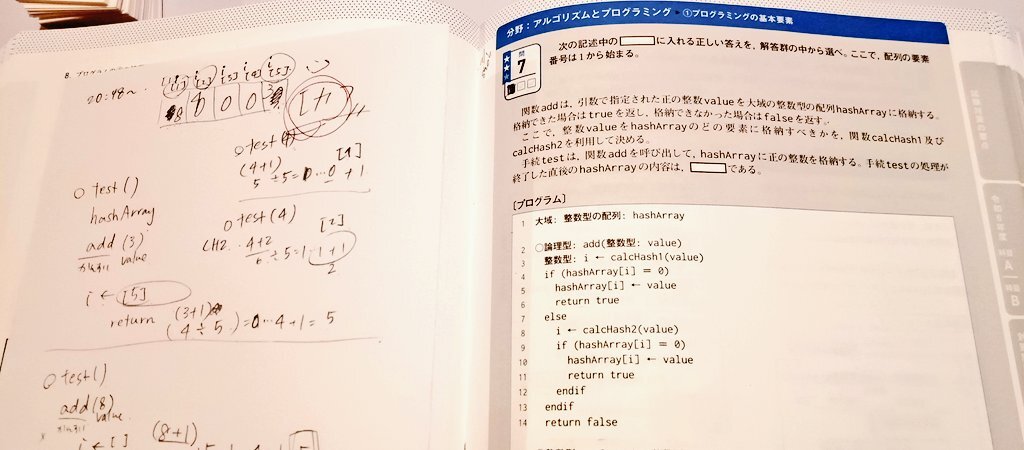 20:48~
[2]
[5]
8
0
0
test
(4+1)
[1]
5 ÷5=0…0+1
○ test ()
hashArray
add (3)
value
○ test (4)
[2]
4+2
6 ÷5=1…1+1
2
i ← [5]
return
(3+1)
(4÷5)=0…4+1=5
○ test ()
add (8)
value
i ← [ ]
(8+1)
分野：アルゴリズムとプログラミング ①プログラミングの基本要素
問
7
次の記述中の に入れる正しい答えを，解答群の中から選べ。ここで，配列の要素
番号は1から始まる。
関数addは，引数で指定された正の整数valueを大域の整数型の配列hashArrayに格納する。
格納できた場合はtrueを返し，格納できなかった場合はfalseを返す。
ここで，整数valueをhashArrayのどの要素に格納すべきかを，関数calcHash1及び
calcHash2を利用して決める。
手続testは，関数addを呼び出して，hashArrayに正の整数を格納する。手続testの処理が
終了した直後のhashArrayの内容は， である。
〔プログラム〕
1 大域: 整数型の配列: hashArray
2 ○論理型: add(整数型: value)
3 整数型: i ← calcHash1(value)
4 if (hashArray[i] = 0)
5 hashArray[i] ← value
6 return true
7 else
8 i ← calcHash2(value)
9 if (hashArray[i] = 0)
10 hashArray[i] ← value
11 return true
12 endif
13 endif
14 return false